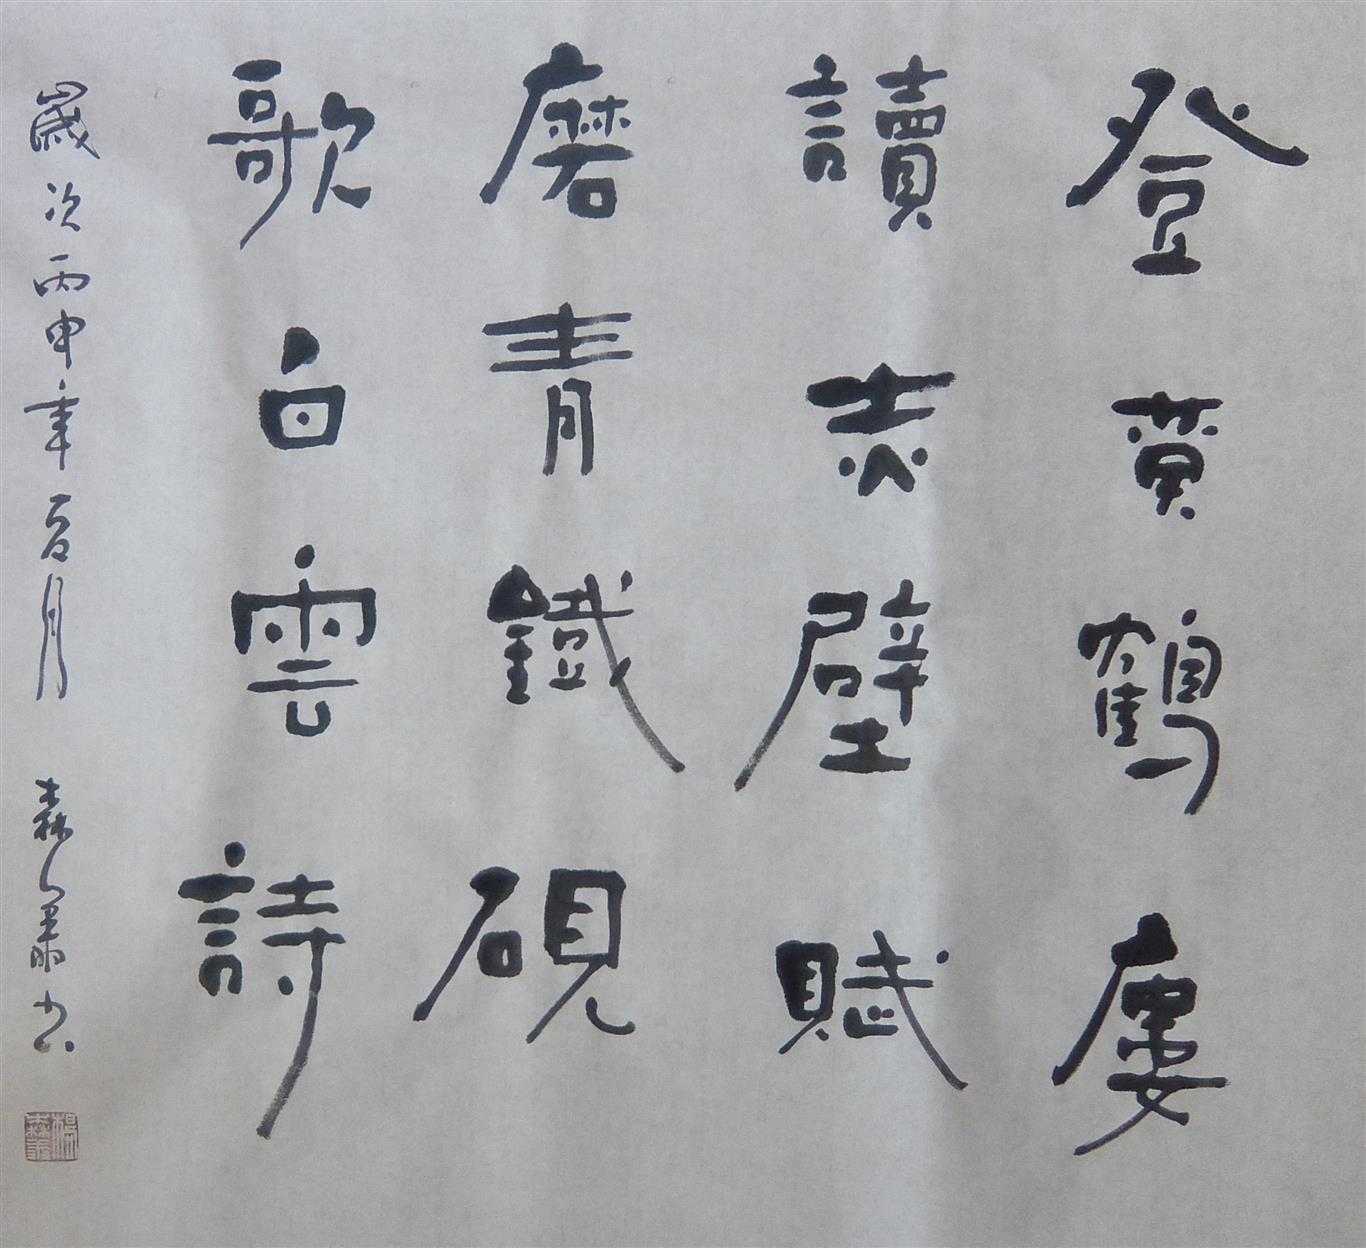 登黄鶴廔
讀赤壁賦
磨青鐵硯
歌白雲詩
歲次丙申年夏月 森书